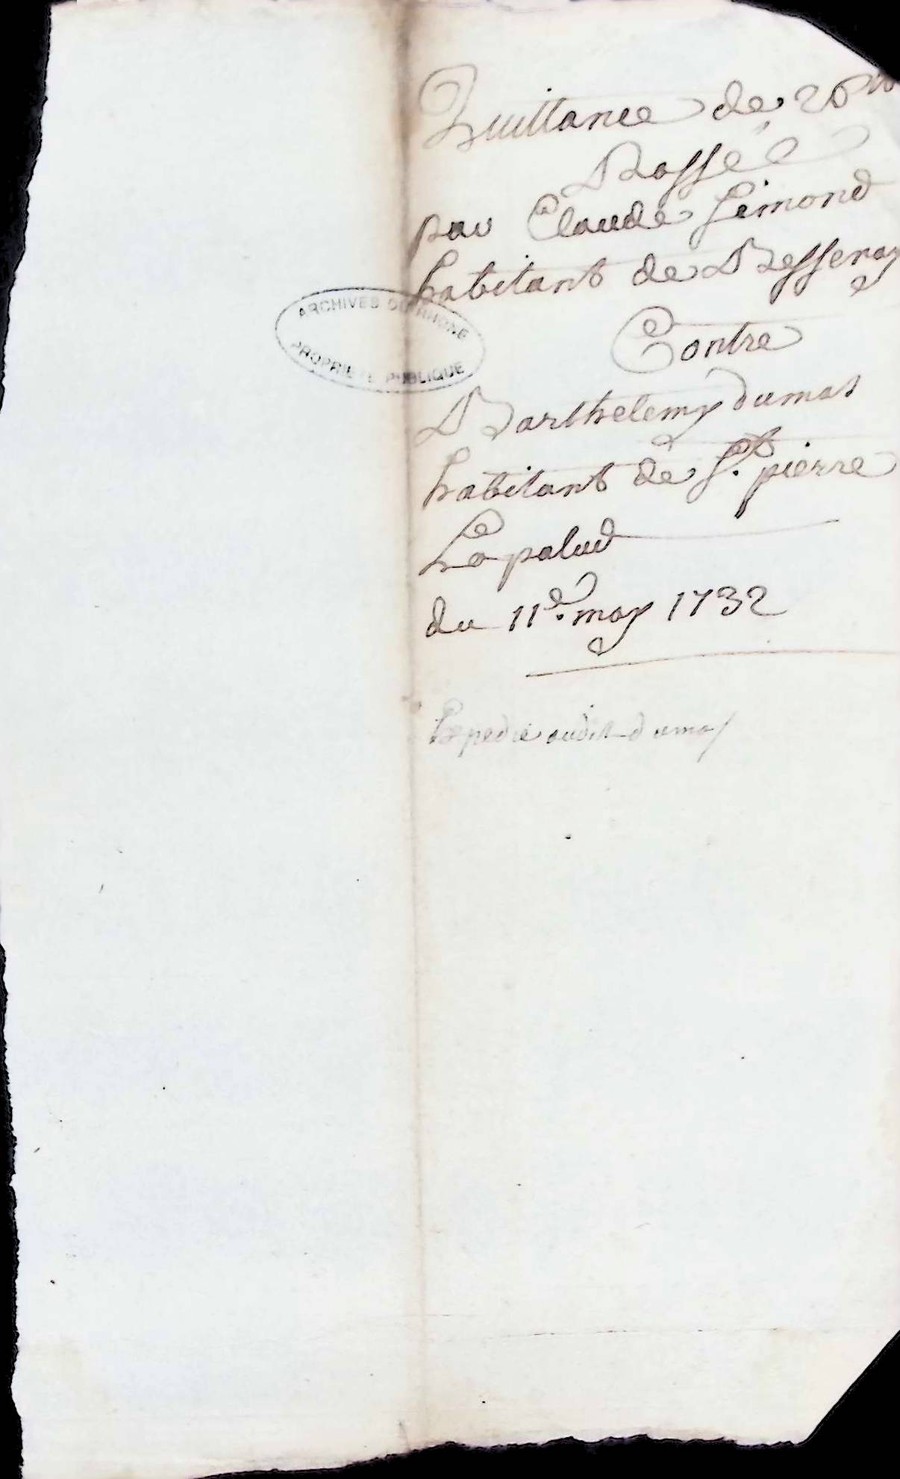 Quittance de 26 ₶
Passée
par Claude Simond
habitant de Bessenay
ARCHIVES DU RHONE
PROPRIETE PUBLIQUE
Contre
Barthelemy dumas
habitant de St. pierre
La palud
du 11e. may 1732
Expedié audit dumas